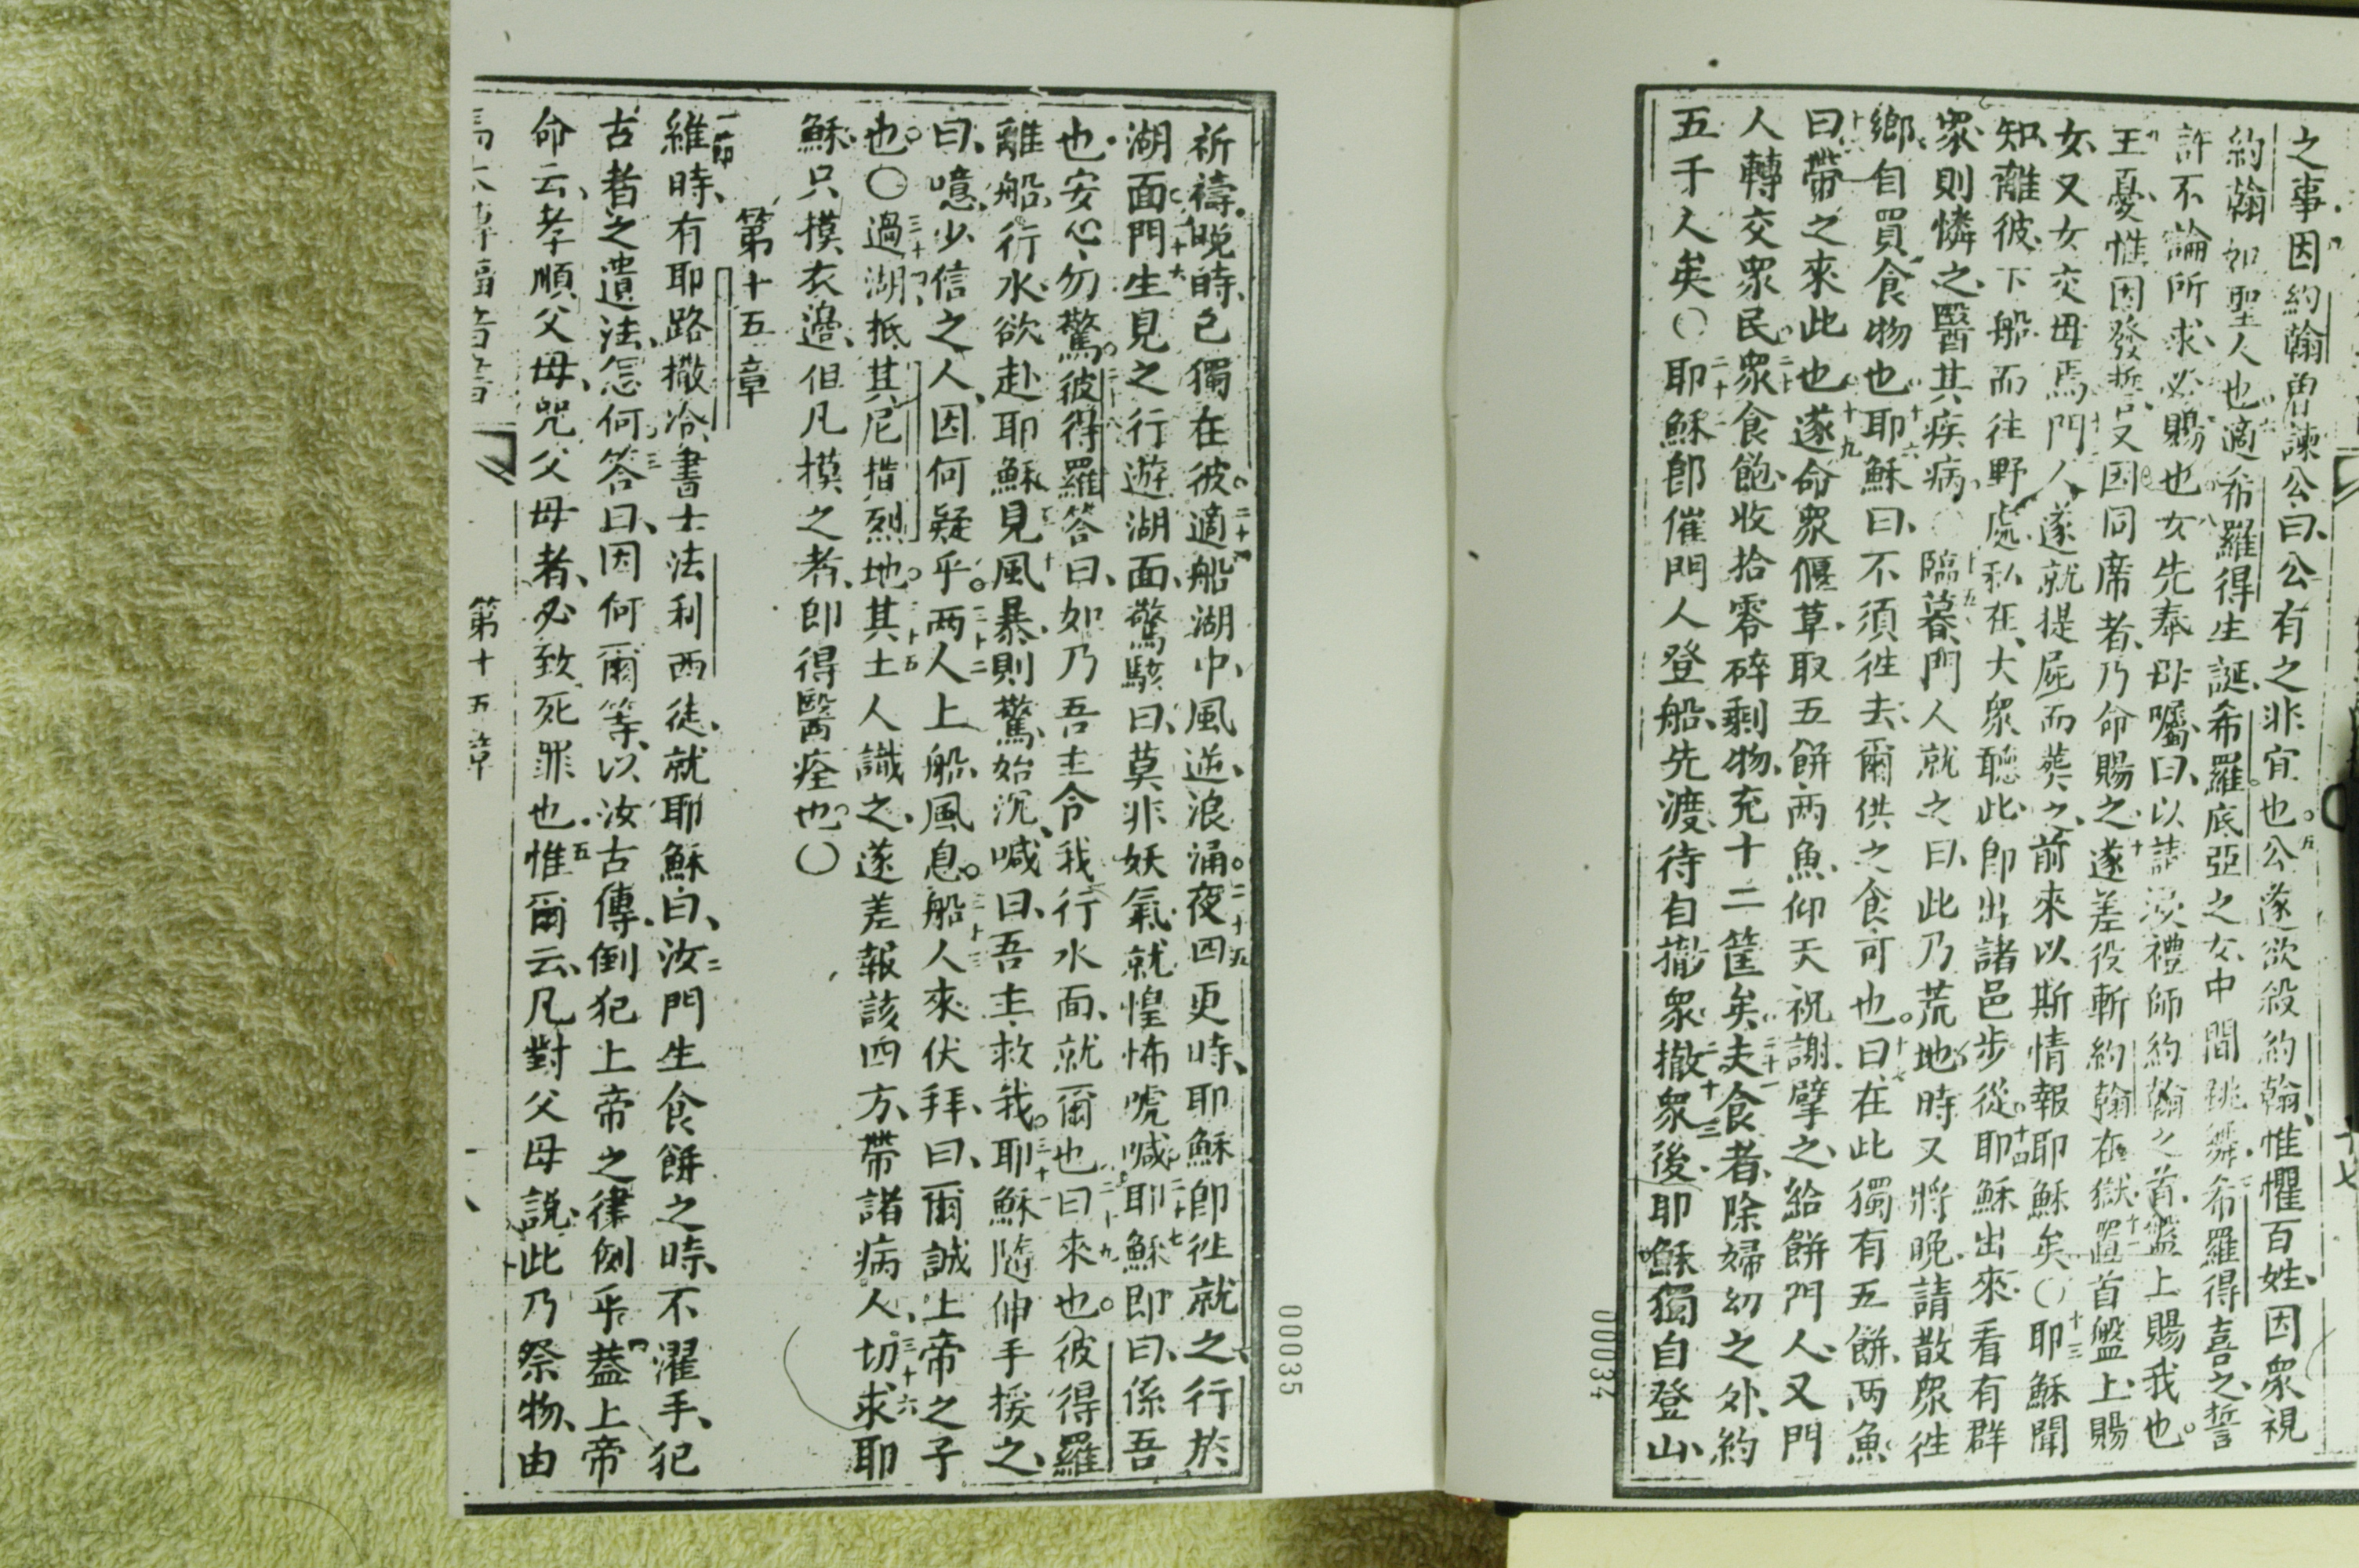 之事因約翰曽諫公曰、公有之非宜也五公遂欲殺約翰、惟懼百姓、因衆視
約翰如聖人也六適希羅得生誕、希羅底亞之女中間跳舞、希羅得喜之、誓
許不論所求、必賜也八女先奉母囑曰、以請浸禮師約翰之首、盤上賜我也。
王憂、惟因發誓、又因同席者、乃命賜之、十遂差役斬約翰在獄、十一置首盤上、賜
女、又女交母焉十二門人遂就提屍而葬之、前來以斯情報耶穌矣〇十三耶穌聞
知、離彼、下船而往野處、私在、大衆聽此、卽出諸邑步從、十四耶穌出來、看有群
衆、則憐之、醫其疾病、〇十五臨暮、門人就之曰、此乃荒地、時又將晚、請散衆徃
鄉、自買食物也、十六耶穌曰、不須徃去、爾供之食可也。十七曰、在此獨有五餅、两魚、
十八曰、帶之來此也、十九遂命衆偃草、取五餅两魚、仰天祝謝、擘之、給餅門人、又門
人轉交衆民、二十衆食飽、收拾零碎剩物、充十二筐矣、二十一夫食者、除婦幼之外、約
五千人矣〇二十二耶穌卽催門人登船、先渡、待自撤衆、二十三撤衆後、耶穌獨自登山、
00034
十七
00035
祈禱、晚時、已獨在彼。二十四適船湖中、風逆、浪涌。二十五夜四更時、耶穌卽徃就之、行於
湖面、二十六門生見之行遊湖面、驚駭曰、莫非妖氣、就惶怖唬喊、二十七耶穌即曰、係吾
也、安心、勿驚。二十八彼得羅答曰、如乃吾主、令我行水面、就爾也、二十九曰、來也。彼得羅
離船、行水、欲赴耶穌、三十見風暴、則驚、始沉、喊曰、吾主、救我。三十一耶穌隨伸手援之、
曰、噫、少信之人、因何疑乎。三十二两人上船、風息。三十三船人來伏拜、曰、爾誠上帝之子
也。〇三十四過湖、抵其尼撒烈地。三十五其土人識之、遂差報該四方、帶諸病人、三十六切求耶
穌、只摸衣邊、但凡摸之者、卽得醫痊也。〇
第十五章
一節維時、有耶路撒冷書士法利西徒、就耶穌曰、二汝門生食餅之時、不濯手、犯
古者之遺法、怎何、三答曰、因何爾等、以汝古傳、倒犯上帝之律例乎、四蓋上帝
命云、孝順父母、咒父母者、必致死罪也。五惟爾云、凡對父母說、此乃祭物、由
馬太傳福音書
第十五章